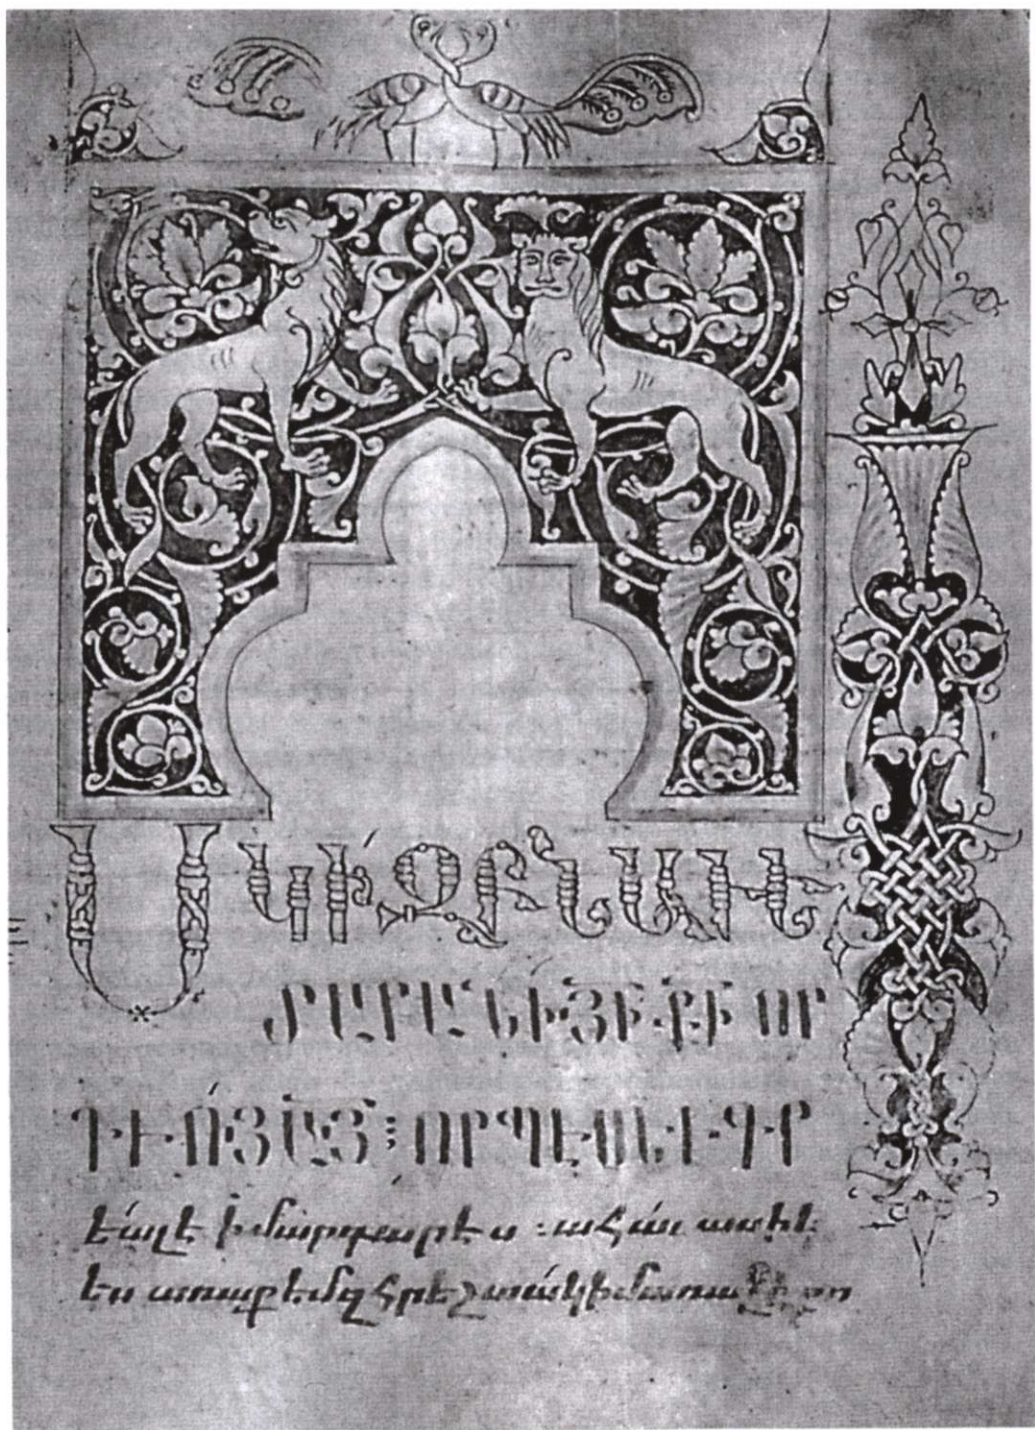 ՍԿԻԶԲՆ ԱՒԵ
ՏԱՐԱՆԻ ՅԻ ՔԻ ՈՐ
ԴՒՈՅ ԱՅ ։ ՈՐՊԷՍ ԵՒ ԳՐ
եալ է ի մարգարէս ։ ահաւասիկ
ես առաքեմ զհրեշտակ իմ առաջի քո